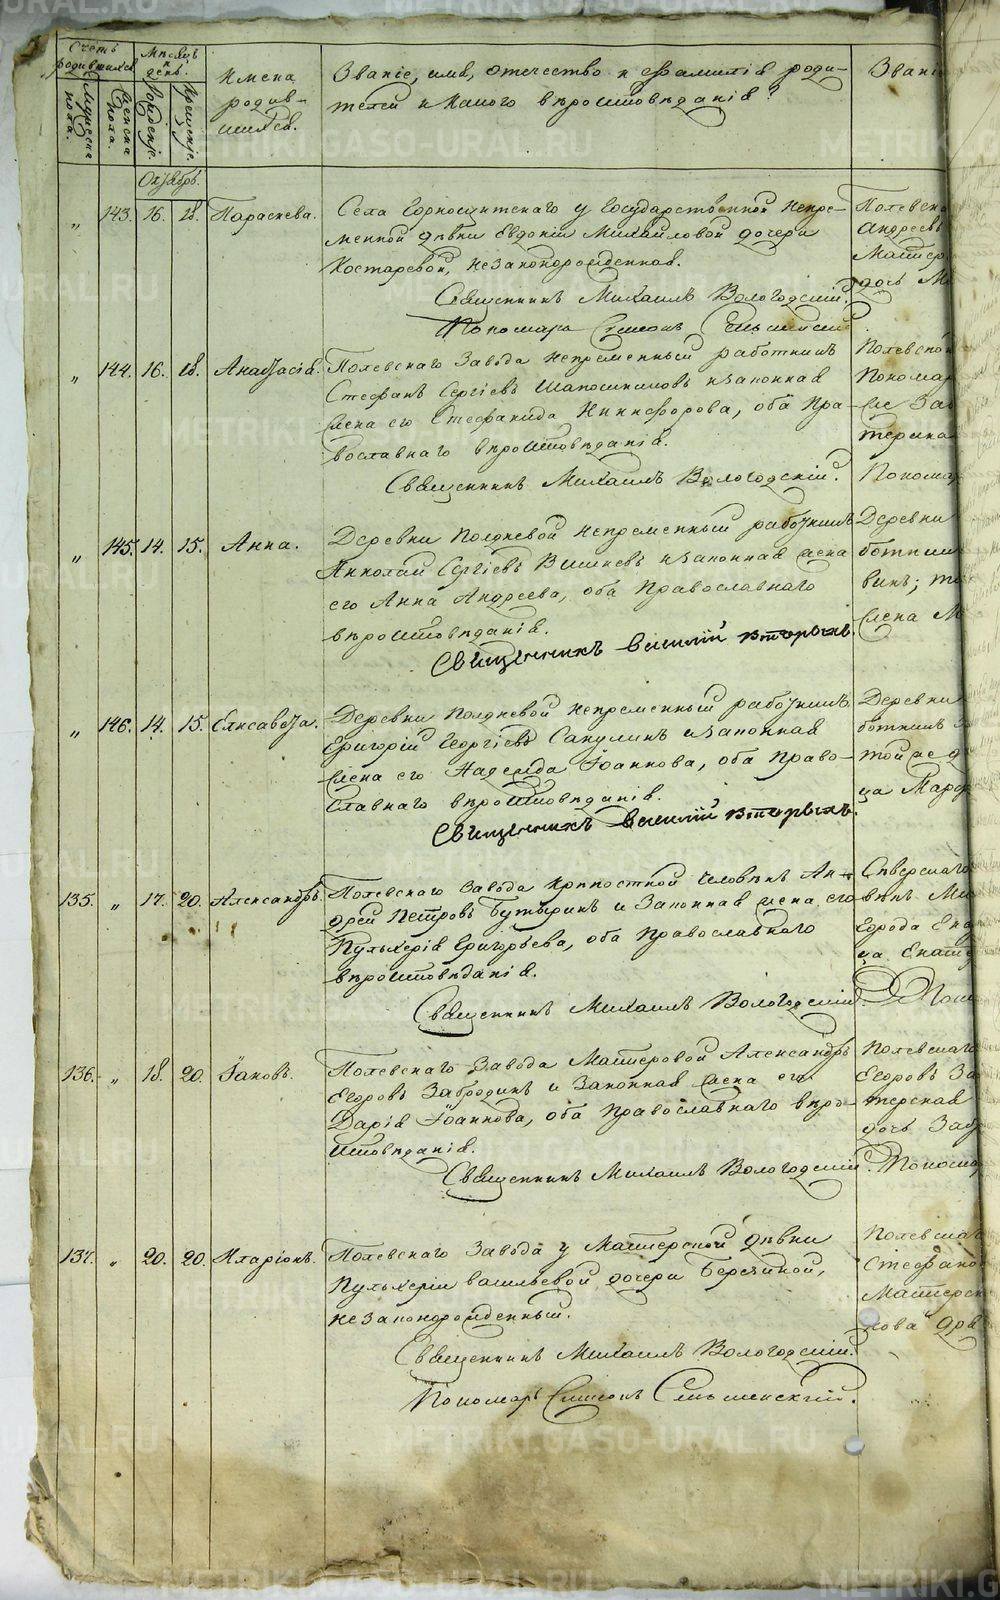 Счетъ родившихся
Мужеска пола.
Женска пола.
Мѣсяцъ и день.
Рожденія.
Крещенія.
Имена родившихся.
Званіе, имя, отечество и фамилія роди-
телей и какого вѣроисповѣданія?
Званіе
Октябрь.
" 143. 16. 18. Параскева.
Села Горнощитскаго у Государственной непре-
менной дѣвки Евдокіи Михайловой дочери
Костаревой, незаконорожденная.
Священникъ Михаилъ Вологодскій.
Пономарь Симеонъ
Полевско
Андреевъ
Мастер
дочь М
" 144. 16. 18. Анастасія.
Полевскаго Завода непременный работникъ
Стефанъ Сергіевъ Шапошниковъ и законная
жена его Стефанида Никифорова, оба Пра-
вославнаго вѣроисповѣданія.
Священникъ Михаилъ Вологодскій.
Полевской
Пономар
Пономар
" 145. 14. 15. Анна.
Деревни Полдневой непременный работникъ
Николай Сергіевъ Вишневъ и законная жена
его Анна Андреева, оба Православнаго
вѣроисповѣданія.
Священникъ Василій Вторыхъ.
Деревни
ботник
жена М
" 146. 14. 15. Елисавета.
Деревни Полдневой непременный работникъ
Григорій Георгіевъ Сакулинъ и законная
жена его Надежда Іоаннова, оба Право-
славнаго вѣроисповѣданія.
Священникъ Василій Вторыхъ.
Деревни
ботникъ
ца Марф
135. " 17. 20. Александръ.
Полевскаго Завода крѣпостной человѣкъ Ан-
дрей Петровъ Бутыринъ и законная жена его
Пульхерія Григорьева, оба Православнаго
вѣроисповѣданія.
Священникъ Михаилъ Вологодскій.
Сѣверскаго
вѣкъ Ми
Города Ека
ца Екате
Поно
136. " 18. 20. Іаковъ.
Полевскаго Завода Мастеровой Александръ
Егоровъ Забродинъ и законная жена его
Дарія Іоаннова, оба Православнаго вѣро-
исповѣданія.
Священникъ Михаилъ Вологодскій.
Полевскаго
Егоровъ За
терская
дочь Заб
Пономар
137. " 20. 20. Иларіонъ.
Полевскаго Завода у Мастерской дѣвки
Пульхеріи Васильевой дочери Березиной,
незаконорожденный.
Священникъ Михаилъ Вологодскій.
Пономарь Симеонъ Сельменскій.
Полевскаг
Стефано
Мастерск
нова
METRIKI.GASO-URAL.RU